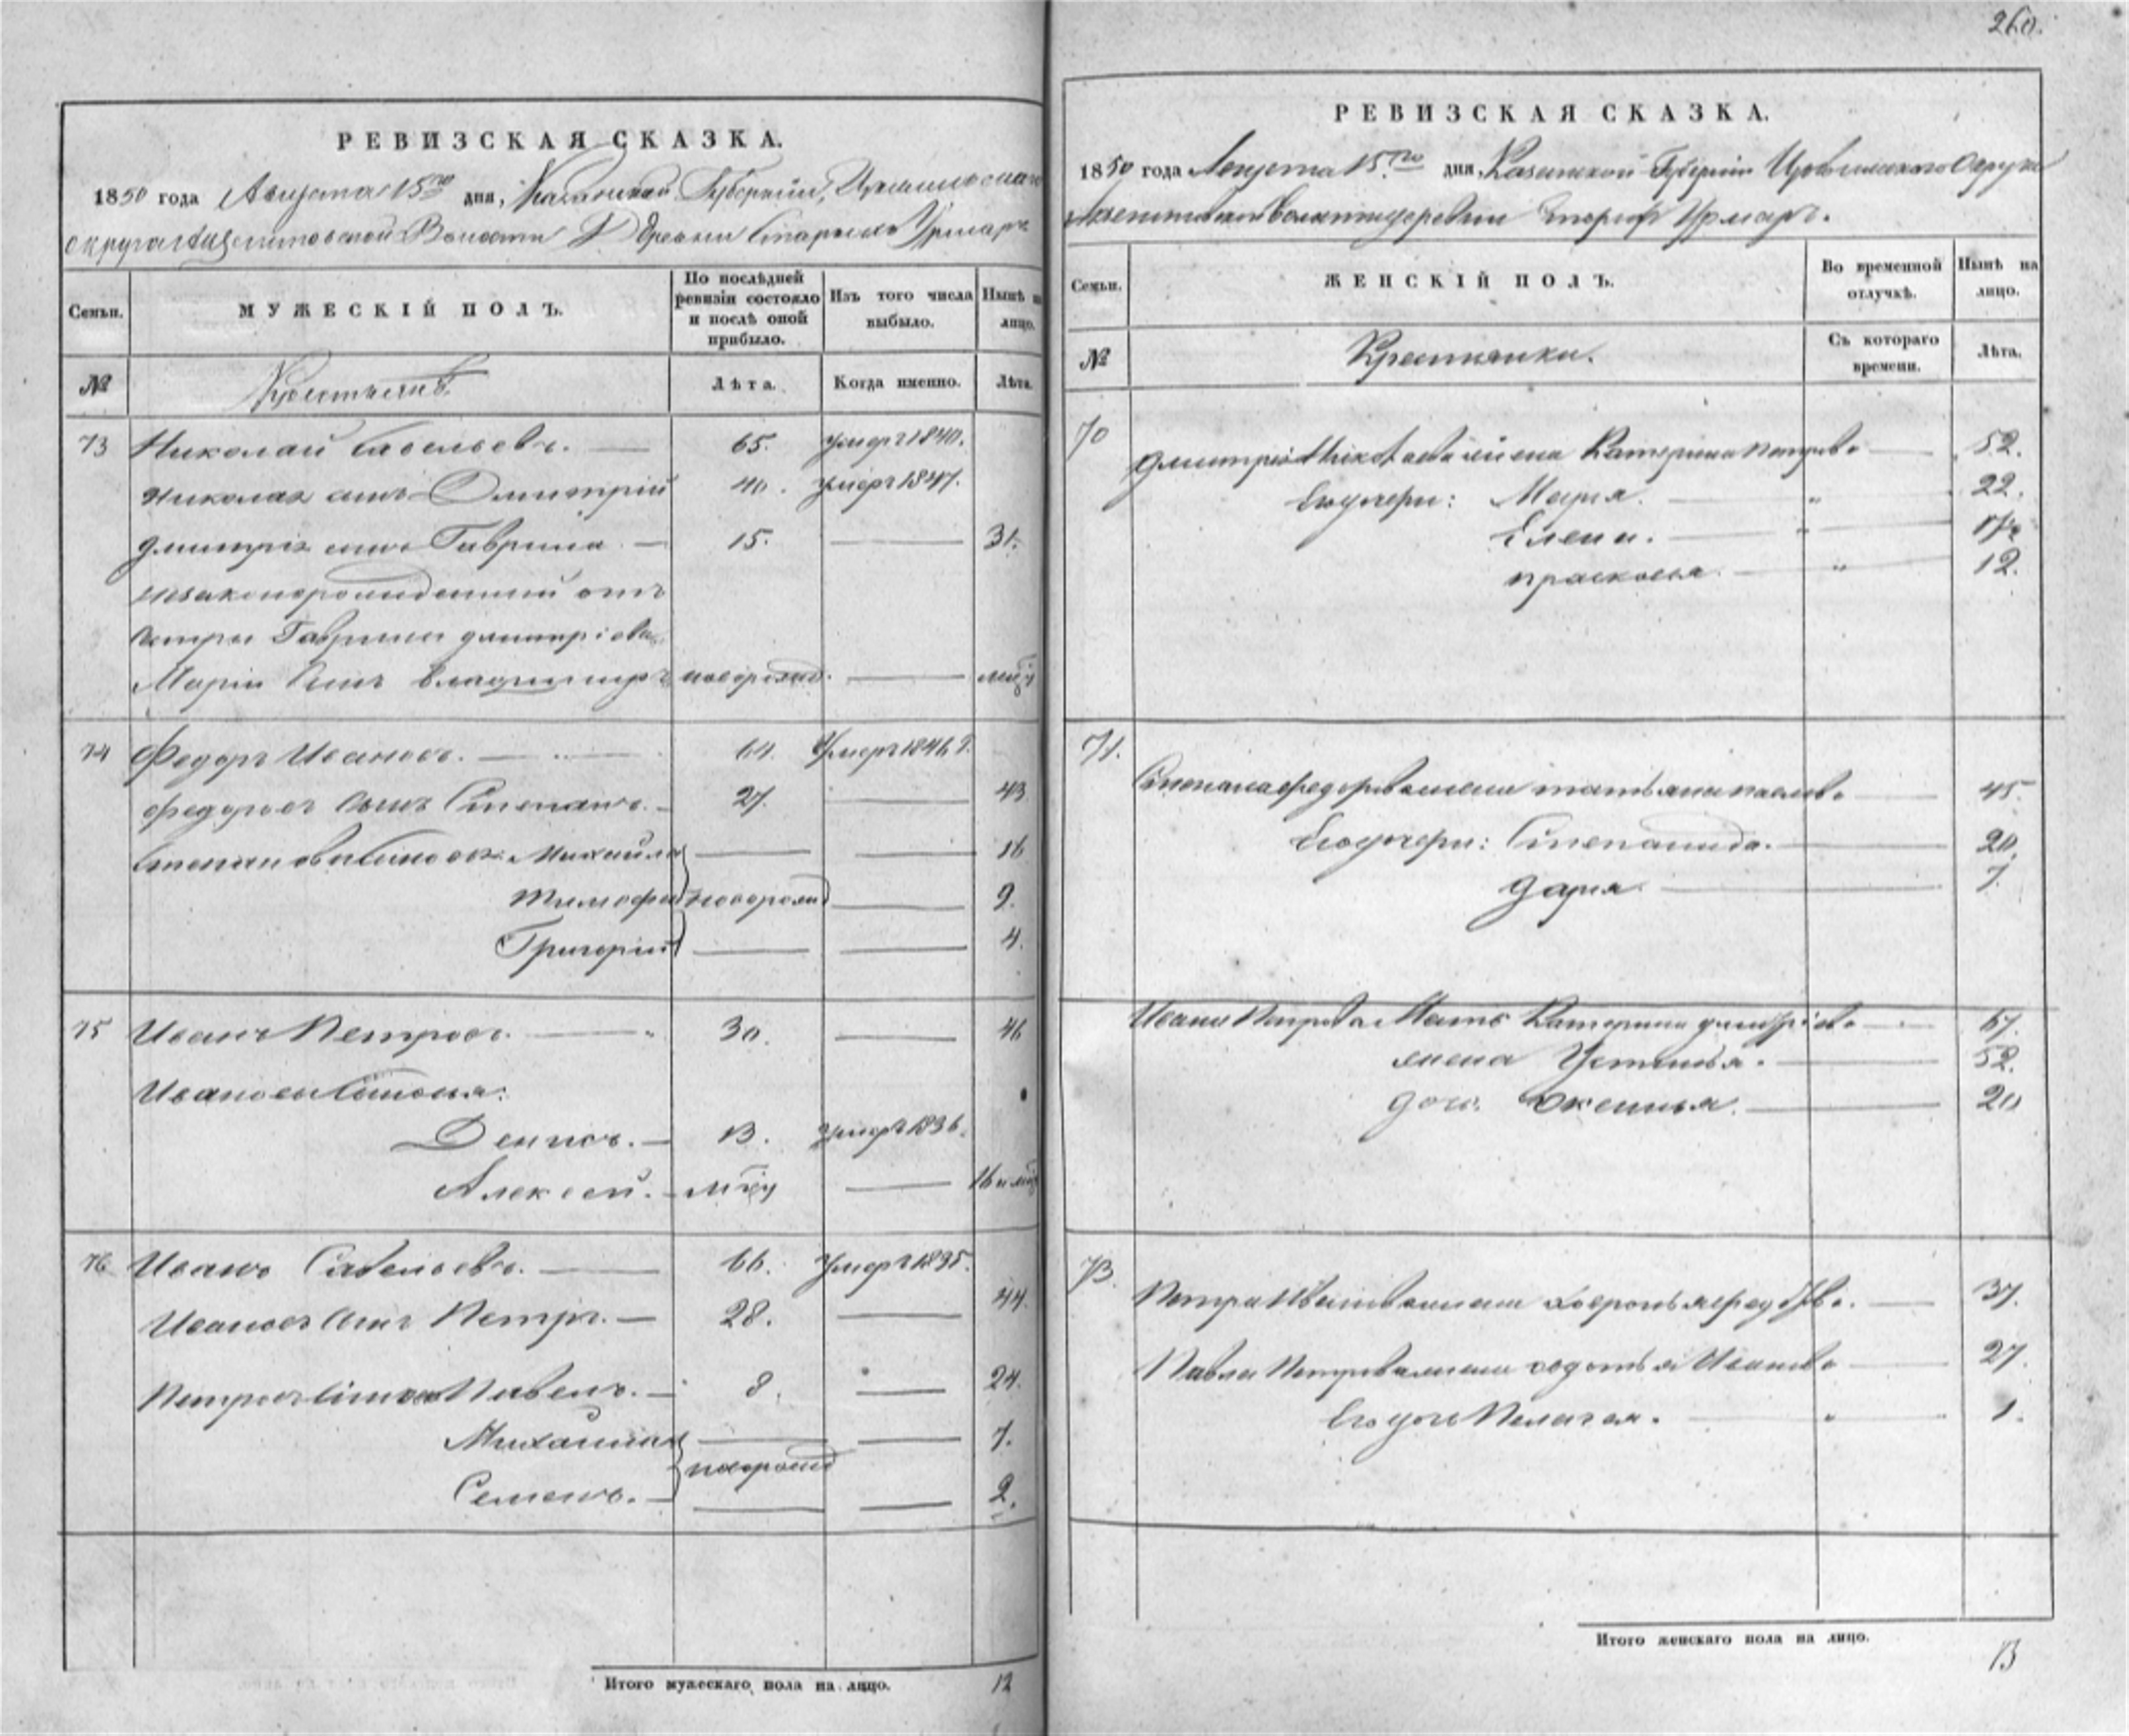 260.
РЕВИЗСКАЯ СКАЗКА.
1850 года Августа 15го дня, Казанской Губерніи, Цивильскаго
округа Волости Деревни Старыхъ Урмаръ
Семьи.
МУЖЕСКІЙ ПОЛЪ.
По послѣдней ревизіи состояло и послѣ оной прибыло.
Изъ того числа выбыло.
Нынѣ на лицо.
№
Лѣта.
Когда именно.
Лѣта.
73 Николай Савельевъ. 65. умеръ 1840.
Николая сынъ Дмитрій 40. умеръ 1847.
Дмитрія сынъ Гаврила 15. 31.
незаконорожденный отъ
сестры Гаврилы Дмитріева
Маріи сынъ Владимиръ новорожд.
74 Федоръ Ивановъ. 64. Умеръ 1846 г.
Федоровъ сынъ Степанъ. 27. 43
Степановы сыновья: Михайла 16
Тимофей новорожд 9.
Григорій 4.
75 Иванъ Петровъ. 30. 46
Ивановы сыновья:
Денисъ. 13. умеръ 1836.
Алексей.
76 Иванъ Савельевъ. 66. Умеръ 1835.
Ивановъ сынъ Петръ. 28. 44.
Петровы сыновья Павелъ. 8. 24.
Михайла 7.
новорожд
Семенъ. 2.
Итого мужескаго пола на лицо. 12
РЕВИЗСКАЯ СКАЗКА.
1850 года Августа 15го дня Казанской Губерніи Цивильскаго Округа
волости деревни Урмаръ.
Семьи.
ЖЕНСКІЙ ПОЛЪ.
Во временной отлучкѣ.
Нынѣ на лицо.
№
Крестьянки.
Съ котораго времени.
Лѣта.
70 Дмитрія Николаева жена Катерина Петрова 52.
Его дочери: Марья. 22.
Елена.
Прасковья. 12.
71. Степана Федорова жена Татьяна 45.
Его дочери: Степанида. 20.
Дарья 7.
Ивана Петрова Мать Катерина Дмитріева 67.
жена Устинья. 52.
дочь 20
73. Петра Иванова жена Ховронья Федорова. 37.
Павла Петрова жена Иванова 27.
Его дочь Пелагея. 1.
Итого женскаго пола на лицо. 13